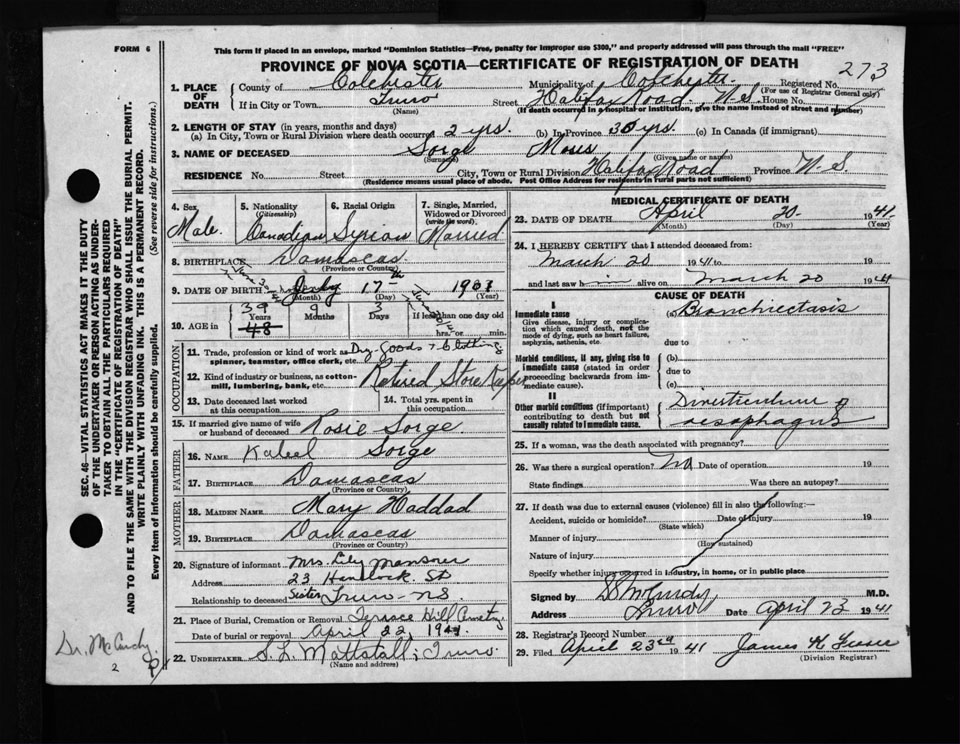 FORM 6
This form if placed in an envelope, marked "Dominion Statistics—Free, penalty for improper use $300," and properly addressed will pass through the mail "FREE"
PROVINCE OF NOVA SCOTIA—CERTIFICATE OF REGISTRATION OF DEATH
273
1. PLACE OF DEATH County of Colchester Municipality of Colchester Registered No.
(For use of Registrar General only)
If in City or Town Truro Street Halifax Road, N.S. House No.
(Name) (If death occurred in a hospital or institution, give the name instead of street and number)
2. LENGTH OF STAY (in years, months and days)
(a) In City, Town or Rural Division where death occurred 2 yrs. (b) In Province 30 yrs. (c) In Canada (if immigrant)
3. NAME OF DECEASED Sorge Moses
(Surname) (Given name or names)
RESIDENCE No. Street City, Town or Rural Division Halifax Road Province N.S.
(Residence means usual place of abode. Post Office Address for residents in rural parts not sufficient)
4. Sex 5. Nationality (Citizenship) 6. Racial Origin 7. Single, Married, Widowed or Divorced (write the word)
Male Canadian Syrian Married
8. BIRTHPLACE Damascus
(Province or Country)
9. DATE OF BIRTH July 17th 1901
(Month) (Day) (Year)
10. AGE in 39 48 Years 9 Months 3 Days If less than one day old
hrs. or min.
OCCUPATION
11. Trade, profession or kind of work as spinner, teamster, office clerk, etc. Dry Goods & Clothing
12. Kind of industry or business, as cotton-mill, lumbering, bank, etc. Retired Store Keeper
13. Date deceased last worked at this occupation 14. Total yrs. spent in this occupation
15. If married give name of wife or husband of deceased Rosie Sorge
FATHER
16. NAME Kabeel Sorge
17. BIRTHPLACE Damascas
(Province or Country)
MOTHER
18. MAIDEN NAME Mary Haddad
19. BIRTHPLACE Damascas
(Province or Country)
20. Signature of informant Mrs. Lily Mansour
Address 23 Hemlock St
Relationship to deceased Sister Truro - NS
21. Place of Burial, Cremation or Removal Terrace Hill Cemetery
Date of burial or removal April 22, 1941
22. UNDERTAKER S. L. Mattatall, Truro.
(Name and address)
MEDICAL CERTIFICATE OF DEATH
23. DATE OF DEATH April 20 1941
(Month) (Day) (Year)
24. I HEREBY CERTIFY that I attended deceased from:
March 20 1941 to 19
and last saw him alive on March 20 1941
CAUSE OF DEATH
I
Immediate cause (a) Bronchiectasis
Give disease, injury or complication which caused death, not the mode of dying, such as heart failure, asphyxia, asthenia, etc.
due to
Morbid conditions, if any, giving rise to immediate cause (stated in order proceeding backwards from immediate cause).
(b)
due to
(c)
II
Other morbid conditions (if important) contributing to death but not causally related to immediate cause.
Diverticulum of oesophagus
25. If a woman, was the death associated with pregnancy?
26. Was there a surgical operation? No Date of operation 19
State findings Was there an autopsy?
27. If death was due to external causes (violence) fill in also the following:—
Accident, suicide or homicide? Date of injury 19
(State which)
Manner of injury
(How sustained)
Nature of injury
Specify whether injury occurred in industry, in home, or in public place
Signed by McCurdy M.D.
Address Truro Date April 23 1941
28. Registrar's Record Number
29. Filed April 23rd 1941 James K
(Division Registrar)
SEC. 46—VITAL STATISTICS ACT MAKES IT THE DUTY
OF THE UNDERTAKER OR PERSON ACTING AS UNDER-
TAKER TO OBTAIN ALL THE PARTICULARS REQUIRED
IN THE "CERTIFICATE OF REGISTRATION OF DEATH"
AND TO FILE THE SAME WITH THE DIVISION REGISTRAR WHO SHALL ISSUE THE BURIAL PERMIT.
WRITE PLAINLY WITH UNFADING INK. THIS IS A PERMANENT RECORD.
Every item of information should be carefully supplied.
(See reverse side for instructions.)
Dr. McCurdy
2